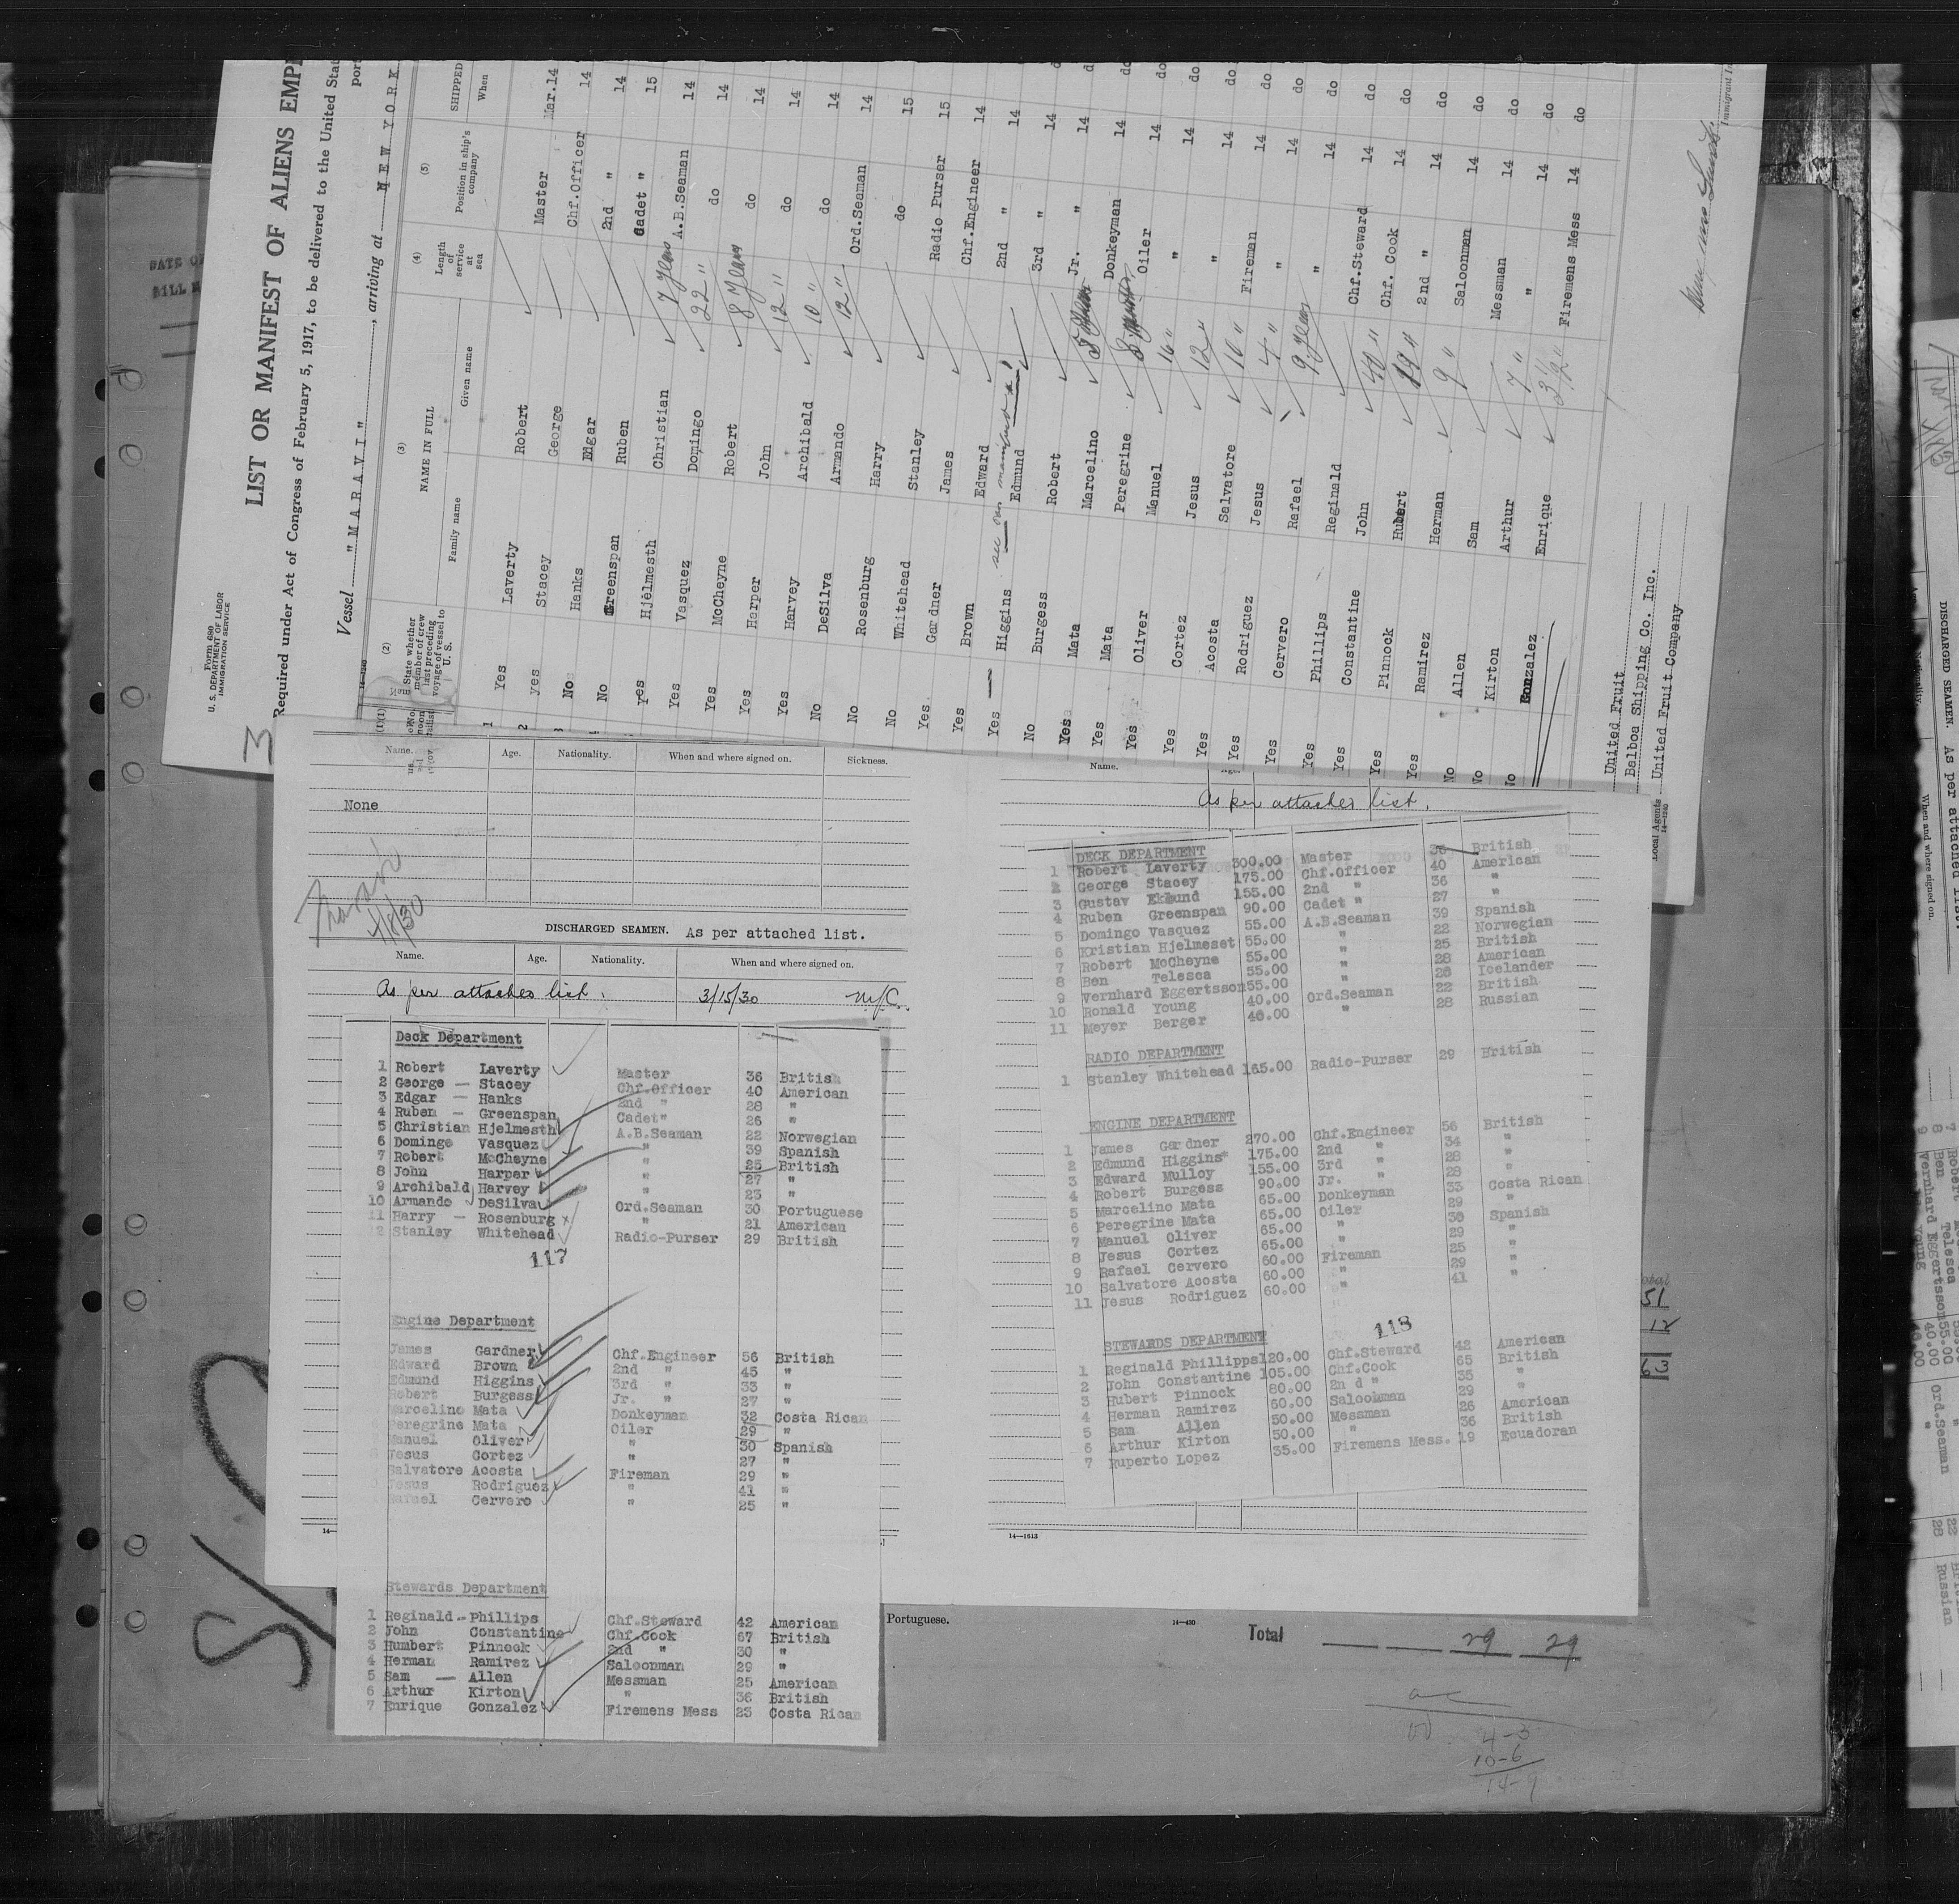 Form 680
U. S. DEPARTMENT OF LABOR
IMMIGRATION SERVICE
3
LIST OR MANIFEST OF ALIENS EMPL
Required under Act of Congress of February 5, 1917, to be delivered to the United Stat
Vessel "MARAVI", arriving at NEW YORK
(1) (2) (3) (4) (5)
State whether member of crew last preceding voyage of vessel to U. S.
NAME IN FULL
Family name Given name
Length of service at sea
Position in ship's company
SHIPPED
When
1 Yes Laverty Robert Master Mar.14
2 yes Stacey George Chf.Officer 14
No Hanks Edgar 2nd " 14
No Greenspan Ruben Cadet " 15
Yes Hjelmesth Christian 7 years A.B.Seaman 14
Yes Vasquez Domingo 22 " do 14
Yes McCheyne Robert 8 years do 14
Yes Harper John 12 " do 14
Yes Harvey Archibald 10 " do 14
No DeSilva Armando 12 " Ord.Seaman 14
No Rosenburg Harry do 15
No Whitehead Stanley Radio Purser 15
Yes Gardner James Chf.Engineer 14
Yes Brown Edward 2nd " 14
Yes Higgins Edmund 3rd " 14
No Burgess Robert Jr. " 14
Yes Mata Marcelino Donkeyman 14
Yes Mata Peregrine Oiler 14
Yes Oliver Manuel 16 " " 14
Yes Cortez Jesus 12 " " 14
Yes Acosta Salvatore 10 " Fireman 14
Yes Rodriguez Jesus 4 " " 14
Yes Cervero Rafael 9 years " 14
Yes Phillips Reginald Chf.Steward 14
Yes Constantine John 40 " Chf. Cook 14
Yes Pinnock Hubert 19 " 2nd " 14
Yes Ramirez Herman 9 " Saloonman 14
No Allen Sam Messman 14
No Kirton Arthur 7 " " 14
No Gonzalez Enrique 3½ " Firemens Mess 14
United Fruit
Balboa Shipping Co. Inc.
United Fruit Company
Local Agents
Immigrant In
Name. Age. Nationality. When and where signed on. Sickness.
None
4/8/30
DISCHARGED SEAMEN. As per attached list.
Name. Age. Nationality. When and where signed on.
As per attached list. 3/15/30 N.Y.C.
Deck Department
1 Robert Laverty Master 36 British
2 George — Stacey Chf.Officer 40 American
3 Edgar — Hanks 2nd " 28 "
4 Ruben — Greenspan Cadet" 26 "
5 Christian Hjelmesth A.B.Seaman 22 Norwegian
6 Domingo Vasquez " 39 Spanish
7 Robert McCheyne " 25 British
8 John Harper " 27 "
9 Archibald Harvey " 23 "
10 Armando DeSilva Ord.Seaman 30 Portuguese
11 Harry — Rosenburg " 21 American
12 Stanley Whitehead Radio-Purser 29 British
117
Engine Department
James Gardner Chf.Engineer 56 British
Edward Brown 2nd " 45 "
Edmund Higgins 3rd " 33 "
Robert Burgess Jr. " 27 "
Marcelino Mata Donkeyman 32 Costa Rican
Peregrine Mata Oiler 29 "
Manuel Oliver " 30 Spanish
Jesus Cortez " 27 "
Salvatore Acosta Fireman 29 "
Jesus Rodriguez " 41 "
Rafael Cervero " 25 "
Stewards Department
1 Reginald - Phillips Chf.Steward 42 American
2 John Constantine Chf.Cook 67 British
3 Humbert Pinnock 2nd " 30 "
4 Herman Ramirez Saloonman 29 "
5 Sam — Allen Messman 25 American
6 Arthur Kirton " 36 British
7 Enrique Gonzalez Firemens Mess 23 Costa Rican
Name.
As per attached list.
DECK DEPARTMENT
1 Robert Laverty 300.00 Master 36 British
2 George Stacey 175.00 Chf.Officer 40 American
3 Gustav Eklund 155.00 2nd " 36 "
4 Ruben Greenspan 90.00 Cadet " 27 "
5 Domingo Vasquez 55.00 A.B.Seaman 39 Spanish
6 Kristian Hjelmeset 55.00 " 22 Norwegian
7 Robert McCheyne 55.00 " 25 British
8 Ben Telesca 55.00 " 28 American
9 Vernhard Eggertsson 55.00 " 28 Icelander
10 Ronald Young 40.00 Ord.Seaman 22 British
11 Meyer Berger 40.00 " 28 Russian
RADIO DEPARTMENT
1 Stanley Whitehead 165.00 Radio-Purser 29 British
ENGINE DEPARTMENT
1 James Gardner 270.00 Chf.Engineer 56 British
2 Edmund Higgins* 175.00 2nd " 34 "
3 Edward Mulloy 155.00 3rd " 28 "
4 Robert Burgess 90.00 Jr. " 28 "
5 Marcelino Mata 65.00 Donkeyman 33 Costa Rican
6 Peregrine Mata 65.00 Oiler 29 "
7 Manuel Oliver 65.00 " 30 Spanish
8 Jesus Cortez 65.00 " 29 "
9 Rafael Cervero 60.00 Fireman 25 "
10 Salvatore Acosta 60.00 " 29 "
11 Jesus Rodriguez 60.00 " 41 "
118
STEWARDS DEPARTMENT
1 Reginald Phillipps 120.00 Chf.Steward 42 American
2 John Constantine 105.00 Chf.Cook 65 British
3 Hubert Pinnock 80.00 2n d " 35 "
4 Herman Ramirez 60.00 Saloonman 29 "
5 Sam Allen 50.00 Messman 26 American
6 Arthur Kirton 50.00 " 36 British
7 Ruperto Lopez 35.00 Firemens Mess. 19 Ecuadoran
14—1613
51
12
63
Portuguese.
14—430
Total 29 29
4-3
10-6
14-9
DISCHARGED SEAMEN. As per attached list.
Nationality. When and where signed on.
Ben Telesca 55.00
Vernhard Eggertsson 40.00 Ord.Seaman 22
Young 28 Russian